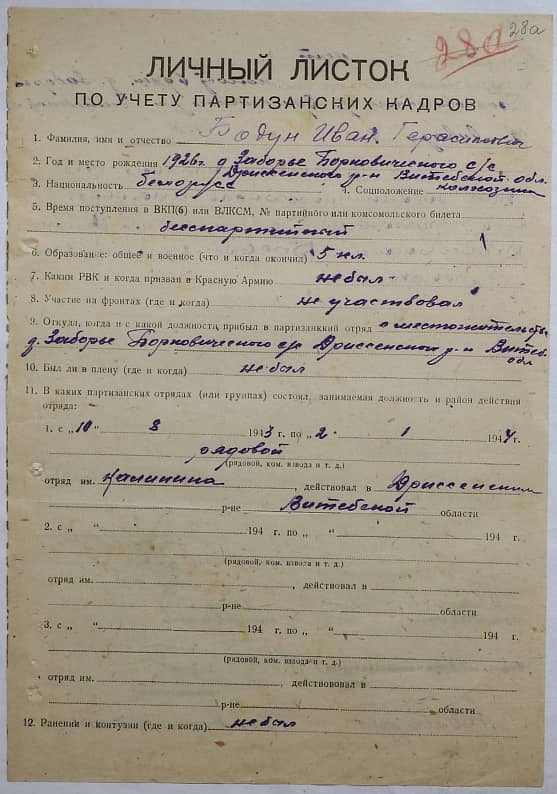 28а 28а
ЛИЧНЫЙ ЛИСТОК
ПО УЧЕТУ ПАРТИЗАНСКИХ КАДРОВ
1. Фамилия, имя и отчество Бодун Иван Герасимович
2. Год и место рождения 1926г. д Заборье Борковичского с/с
Дриссенского р-н Витебской обл.
3. Национальность белорусс 4. Соцположение колхозник
5. Время поступления в ВКП(б) или ВЛКСМ, № партийного или комсомольского билета
беспартийный
6. Образование: общее и военное (что и когда окончил) 5 кл.
7. Каким РВК и когда призван в Красную Армию не был
8. Участие на фронтах (где и когда) не участвовал
9. Откуда, когда и с какой должности прибыл в партизанкий отряд с местожительства
д. Заборье Борковичского с/с Дриссенского р-н Витеб.
обл
10. Был ли в плену (где и когда) не был
11. В каких партизанских отрядах (или группах) состоял, занимаемая должность и район действия
отряда:
1. с „10 " 8 1943 г. по „ 2 " 1 1944 г.
рядовой
(рядовой, ком. взвода и т. д.)
отряд им. Калинина, действовал в Дриссенским
р-не Витебской области
2. с „ " 194 г. по „ " 194 г.
(рядовой, ком. взвода и т. д.)
отряд им. , действовал в
р-не области
3. с „ " 194 г. по „ " 194 г.
(рядовой, ком. взвода и т. д.)
отряд им. , действовал в
р-не области
12. Ранений и контузии (где и когда) не был